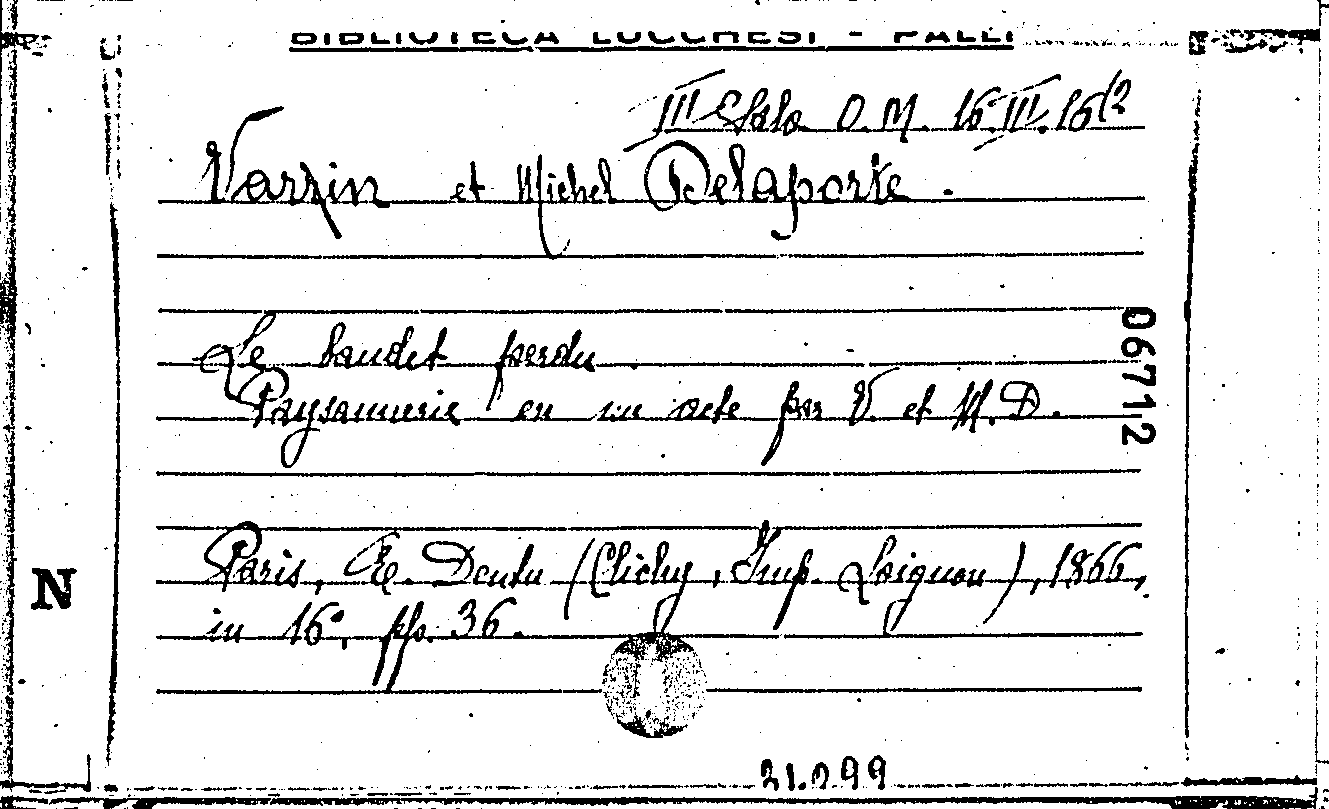 BIBLIOTECA LUCCHESI - PALLI
III Sala O. M. 16.III.16(2
Varzin et Michel Delaporte.
Le baudet perdu.
Paysannerie en un acte par V. et M. D.
06712
Paris, E. Dentu (Clichy, Imp. Loignon), 1866,
N
in 16°, pp. 36.